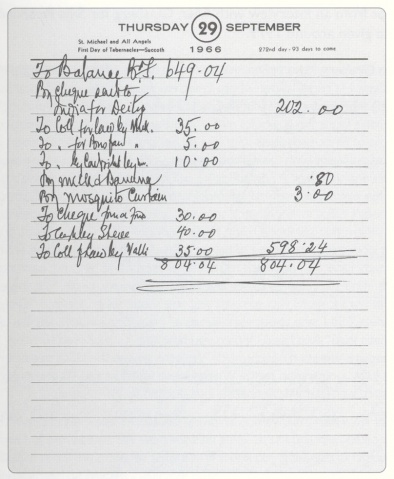 THURSDAY 29 SEPTEMBER
St. Michael and All Angels
First Day of Tabernacles—Succoth
1966
272nd day - 93 days to come
To Balance B/F. 649.04
By cheque sent to
India for Deity 202.00
To Coll for Law by Muk. 35.00
To " for " 5.00
To " by 10.00
By milk & Banana .80
By Mosquito Curtain 3.00
To Cheque from 30.00
To 40.00
To Coll f Law by Valli 35.00 598.24
804.04 804.04